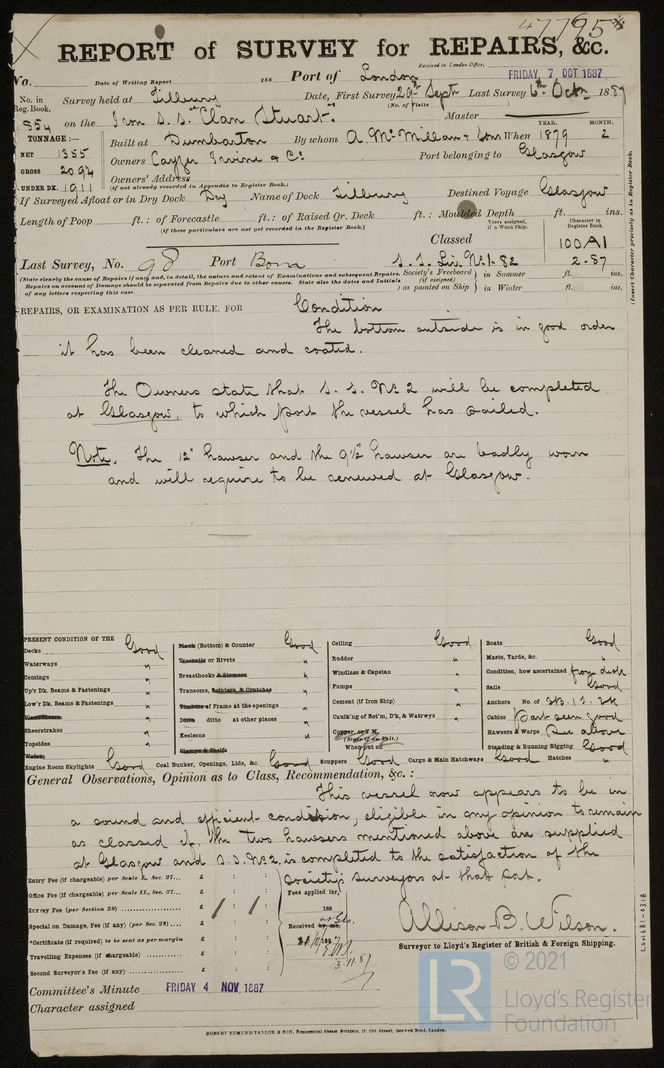 47795
REPORT of SURVEY for REPAIRS, &c.
Received in London Office,
No. Date of Writing Report 188 Port of London FRIDAY 7 OCT 1887
No. in Reg. Book. Survey held at Tilbury Date, First Survey 29th Sept Last Survey 6th Octr 1887
(No. of Visits )
854 on the Iron S.S. "Clan Stuart" Master
TONNAGE:— Built at Dumbarton By whom A. McMillan & Sons When 1879 2
YEAR. MONTH.
NET 1355
GROSS 2094 Owners Cayzer Irvine & Co Port belonging to Glasgow
UNDER DK. 1911 Owners' Address
(if not already recorded in Appendix to Register Book.)
If Surveyed Afloat or in Dry Dock Dry Name of Dock Tilbury Destined Voyage Glasgow
Length of Poop ft.: of Forecastle ft.: of Raised Qr. Deck ft.: Moulded Depth ft. ins.
(if these particulars are not yet recorded in the Register Book.)
Years assigned, if a Wood Ship. Character in Register Book.
Classed 100A1
Last Survey, No. 98 Port Bom S.S. Liv. No.1-82 2-87
(State clearly the cause of Repairs if any, and, in detail, the nature and extent of Examinations and subsequent Repairs.
Repairs on account of Damage should be separated from Repairs due to other causes. State also the dates and Initials
of any letters respecting this case.
Society's Freeboard (if assigned) as painted on Ship } in Summer ft. ins.
in Winter ft. ins.
(Insert Character precisely as in Register Book.
REPAIRS, OR EXAMINATION AS PER RULE, FOR Condition
The bottom outside is in good order
it has been cleaned and coated.
The Owners state that S.S. No 2 will be completed
at Glasgow, to which port the vessel has sailed.
Note. The 12" hawser and the 9½" hawser are badly worn
and will require to be renewed at Glasgow.
PRESENT CONDITION OF THE
Decks Good
Waterways "
Comings "
Up'r Dk. Beams & Fastenings "
Low'r Dk. Beams & Fastenings "
Sheerstrakes "
Topsides "
Wales
Engine Room Skylights Good
Plank (Bottom) & Counter Good
Treenails or Rivets "
Breasthooks & Stemson "
Transoms, Pointers, & Crutches "
Timbers or Frame at the openings "
Ditto ditto at other places "
Keelsons "
Clamps & Shelfs
Coal Bunker, Openings, Lids, &c. Good
Ceiling Good
Rudder "
Windlass & Capstan "
Pumps "
Cement (if Iron Ship) "
Caulk'g of Bot'm, D'k, & Watrwys "
Copper, or Y.M.
(State if on Felt.)
When put on
Scuppers Good Cargo & Main Hatchways Good
Boats Good
Masts, Yards, &c. "
Condition, how ascertained from deck
Sails Good
Anchors No. of 3B. 1S. 2K
Cables Part seen good
Hawsers & Warps See above
Standing & Running Rigging Good
Hatches "
General Observations, Opinion as to Class, Recommendation, &c.:
This vessel now appears to be in
a sound and efficient condition, eligible in my opinion to remain
as classed if the two hawsers mentioned above are supplied
at Glasgow and S.S. No 2 is completed to the satisfaction of the
Society's surveyors at that port.
Entry Fee (if chargeable) per Scale I., Sec. 27... £ : :
Office Fee (if chargeable) per Scale II., Sec. 27... £ : :
Survey Fee (per Section 28) £ 1 : 1 :
Special on Damage, Fee (if any) (per Sec. 28) £ : :
*Certificate (if required) to be sent as per margin £ : :
Travelling Expenses (if chargeable) £ : :
Second Surveyor's Fee (if any) £ : :
Fees applied for,
188
Received by me,
at Glo.
3.11.87
Allison B. Wilson.
Surveyor to Lloyd's Register of British & Foreign Shipping.
Committee's Minute FRIDAY 4 NOV 1887
Character assigned
ROBERT EDMUND TAYLOR & SON, Commercial Steam Printers, 19, Old Street, Goswell Road, London.
LON681-0318
LR
© 2021
Lloyd's Register
Foundation